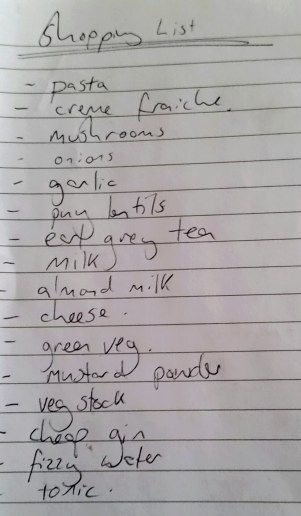 Shopping List
- pasta
- creme fraiche.
- mushrooms
- onions
- garlic
- puy lentils
- earl grey tea
- milk
- almond milk
- cheese.
- green veg.
- mustard powder
- veg stock
- cheap gin
- fizzy water
- tonic.